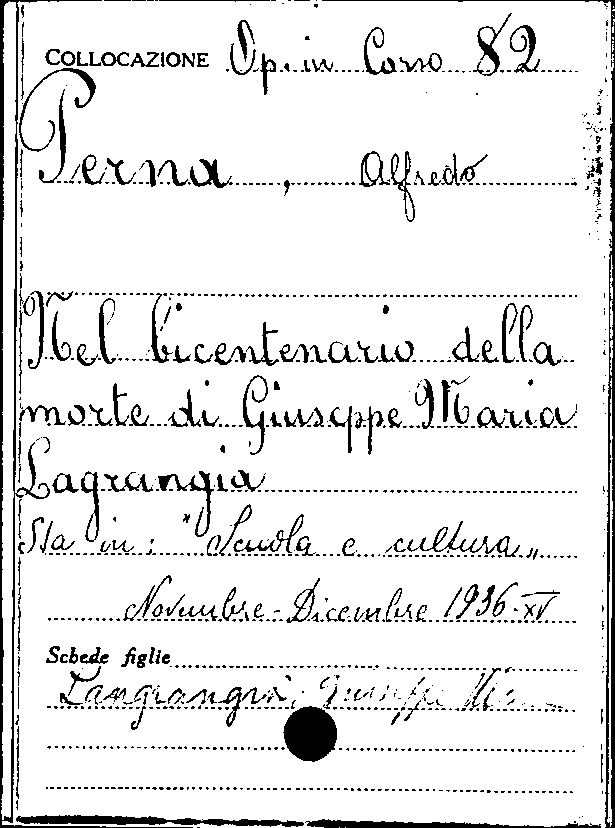 COLLOCAZIONE Op. in Corso 82
Perna, Alfredo
Nel bicentenario della
morte di Giuseppe Maria
Lagrangia
Sta in: "Scuola e cultura„
Novembre-Dicembre 1936-XV
Schede figlie
Langrangia, Giuseppe